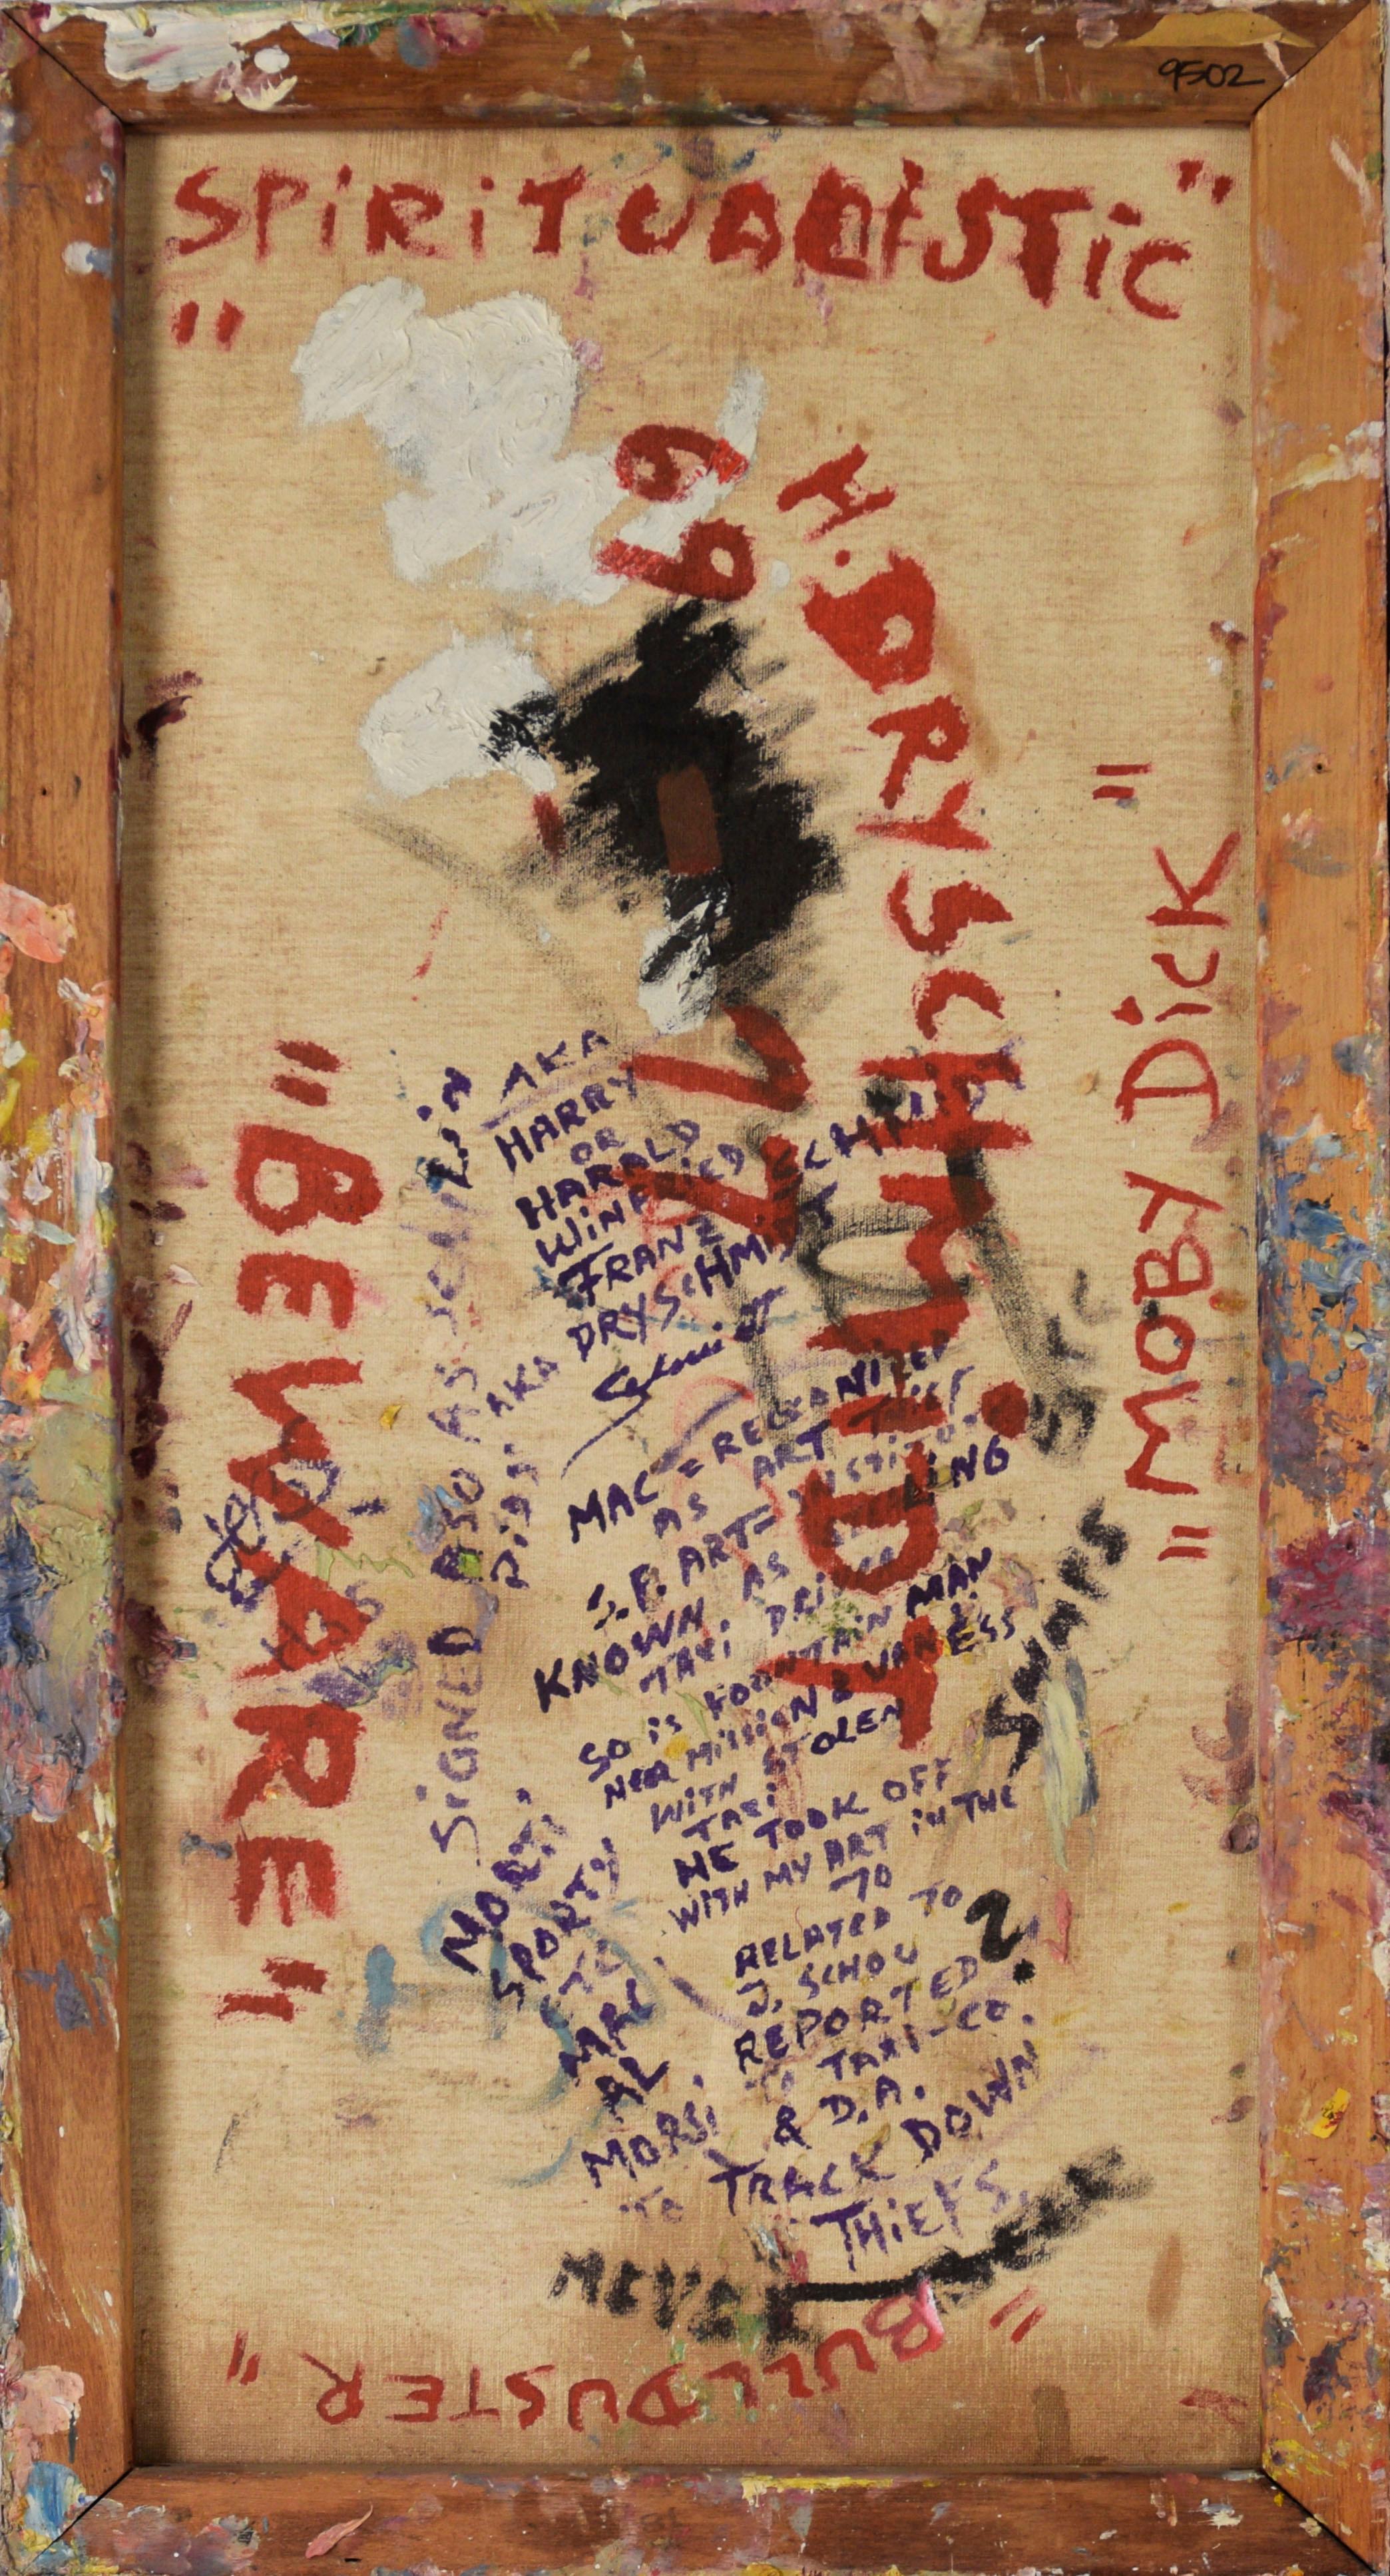 9502
"SPiRiTUALiSTiC"
69
H. DRYSCHMiDT
72
"MOBY DiCK"
"BEWARE"
AKA
HARRY
OR
HARALD
WiNFRiED SCHMiDT
FRANZ
DRYSCHMiDT
AKA
Schmidt
SiGNED ALSO AS
MAC = RECOGNiZED
AS ART THiEF
S.F. ART=
KNOWN AS
TAXi DRiVER
SO iS FOUNTAiN MAN
NEAR MiSSiON & VAN NESS
WiTH STOLEN
TAXi
HE TOOK OFF
WiTH MY ART iN THE
70
RELATED TO
J. SCHOU
?
REPORTED
TO TAXi-CO.
& D.A.
TO TRACK DOWN
THiEFS.
MORTi,
SPORTY
ETC
MAC
AL
MORSi,
SWARS
"BULLDUSTER"